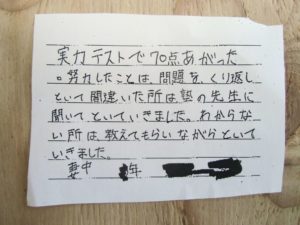 実力テストで70点あがった
。努力したことは、問題を、くり返し
といて間違いた所は塾の先生に
聞いて、といていきました。わからな
い所は、教えてもらいながらといて
いきました。
妻中 年